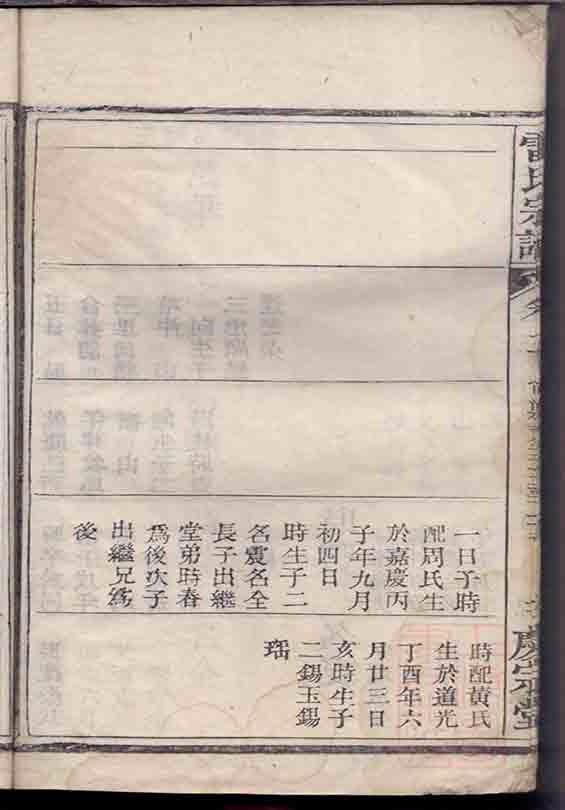 雷氏宗譜
慶宗堂
一日子時
配周氏生
於嘉慶丙
子年九月
初四日
時生子二
名震名全
長子出繼
堂弟時春
為後次子
出繼兄為
後
時配黃氏
生於道光
丁酉年六
月廿三日
亥時生子
二錫玉錫
瑤